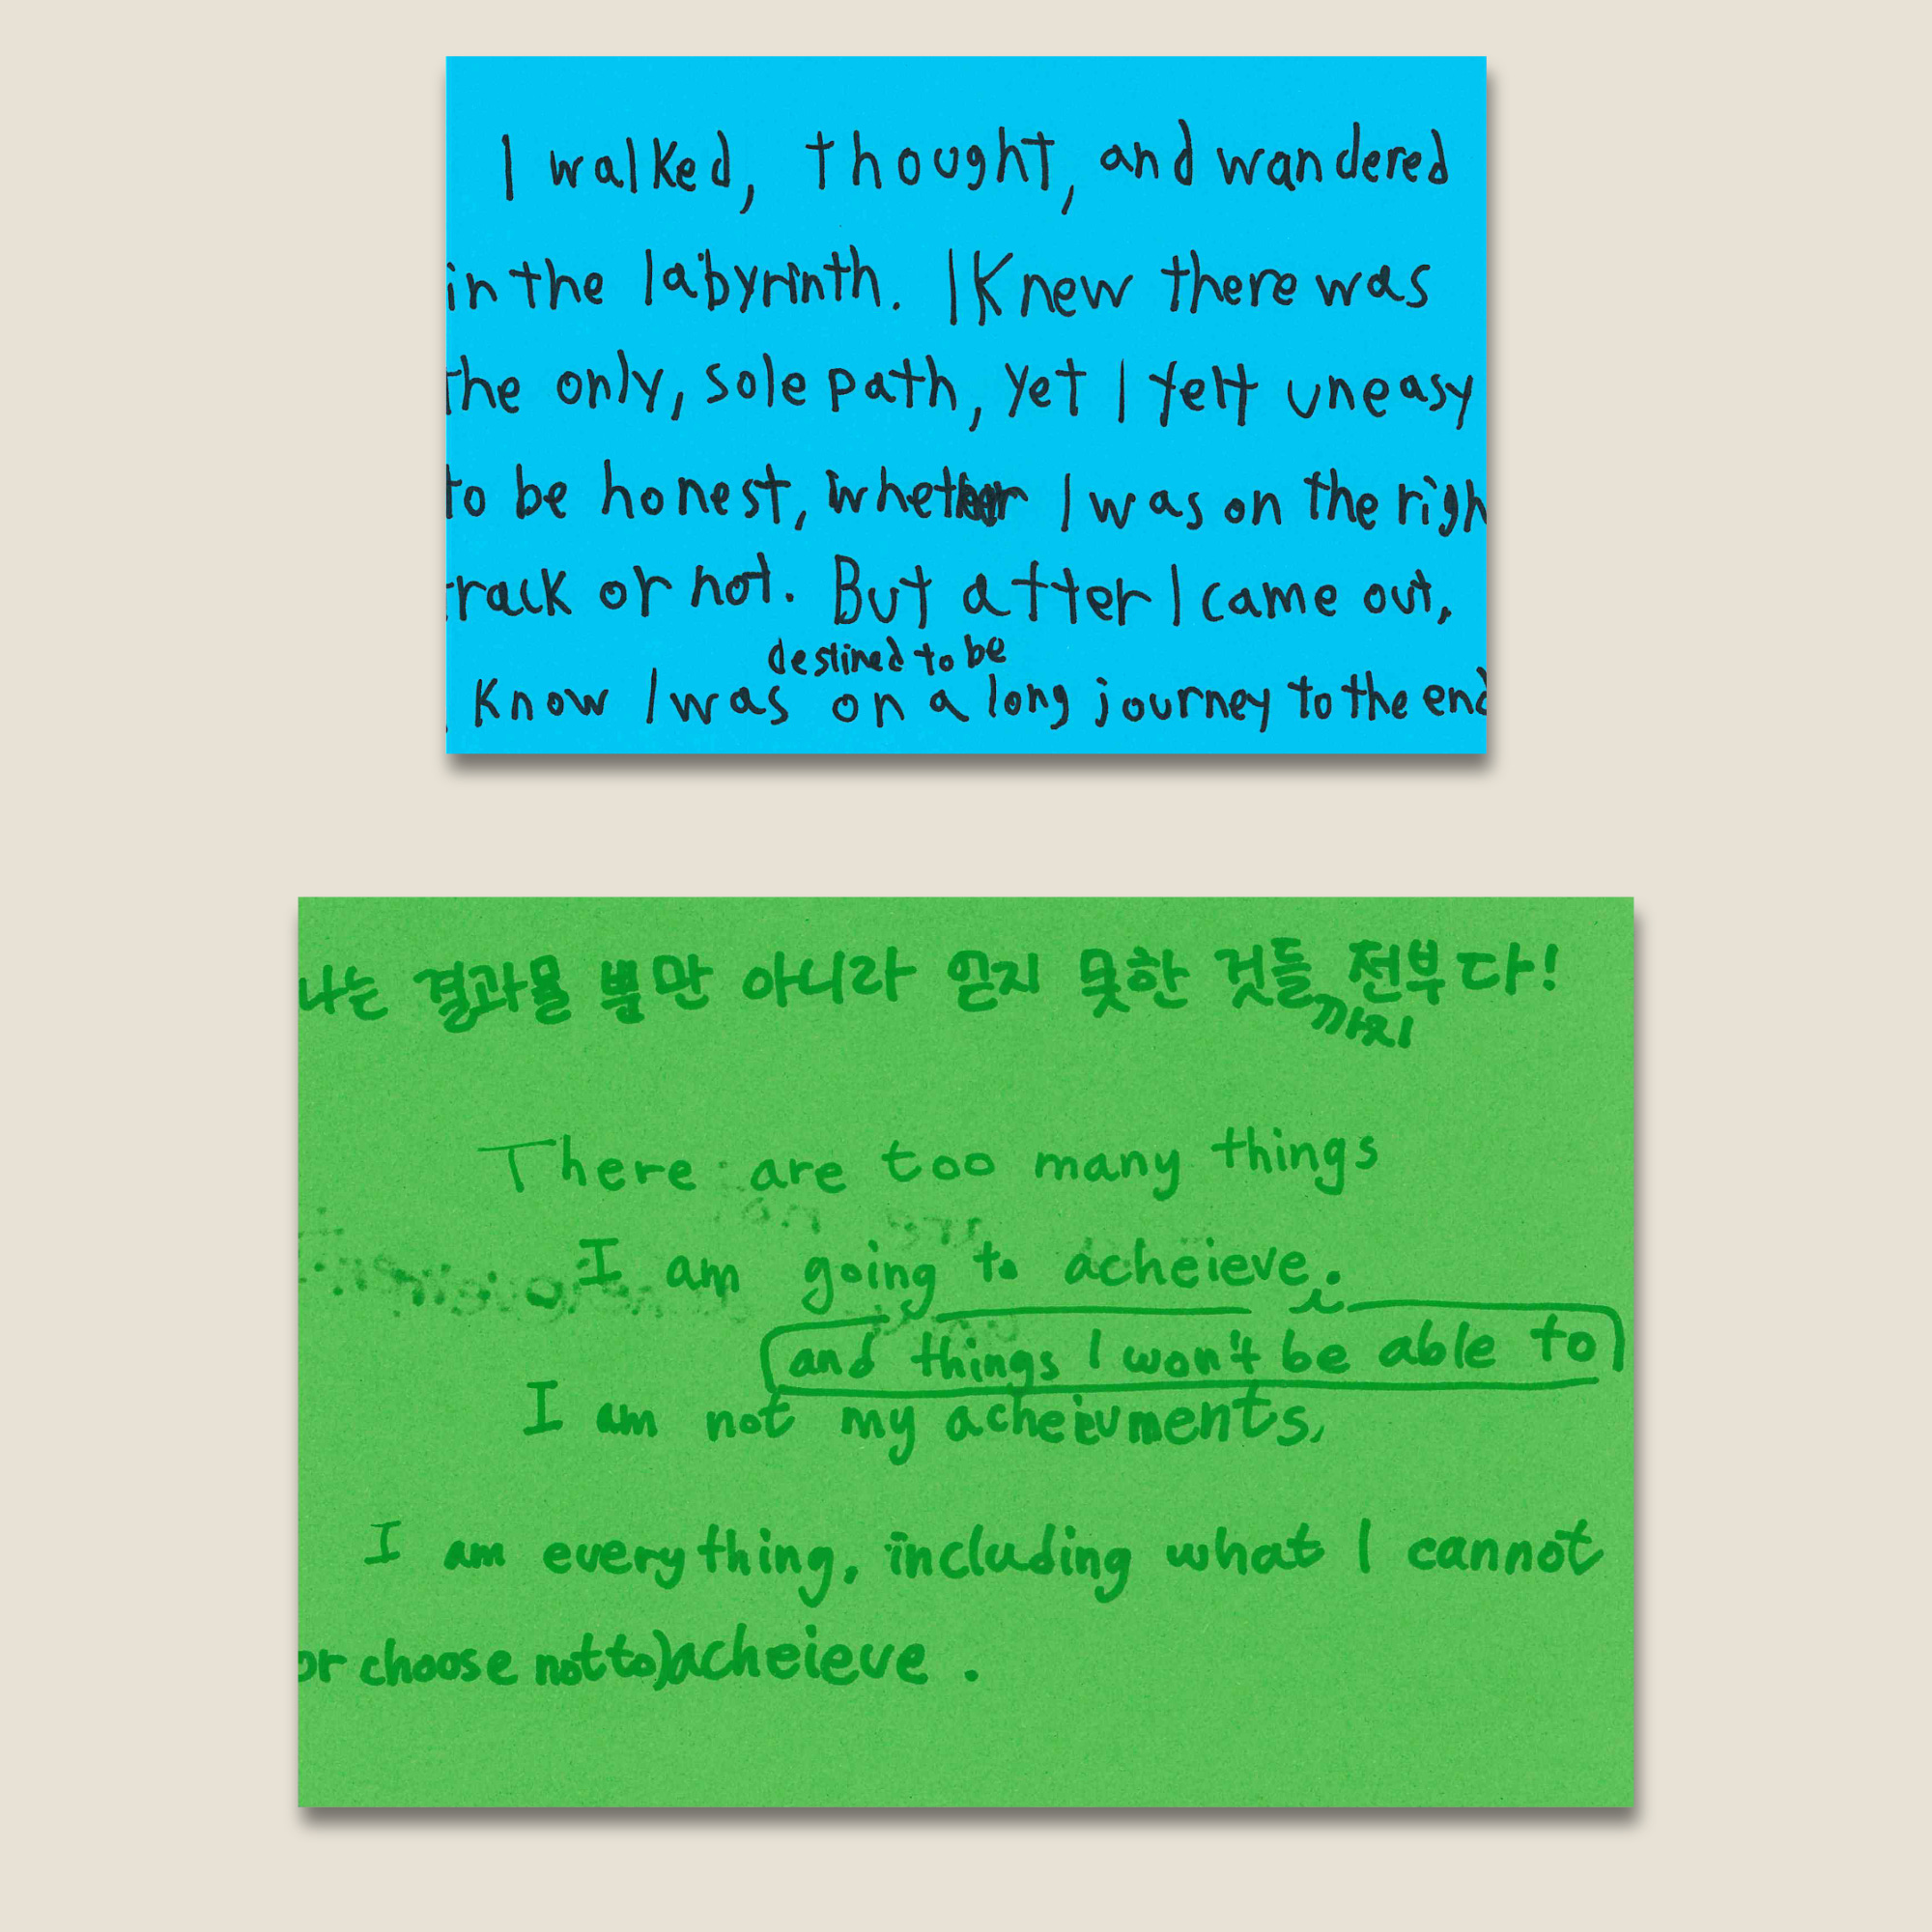 I walked, thought, and wandered
in the labyrinth. I Knew there was
the only, sole path, yet I felt uneasy
to be honest, whether I was on the righ
rack or not. But after I came out,
destined to be
Know I was on a long journey to the end
나는 결과물 뿐만 아니라 얻지 못한 것들 전부다!
까지
There are too many things
I am going to acheieve.
and things I won't be able to
I am not my acheivments,
I am everything, including what I cannot
or choose not to) acheieve.